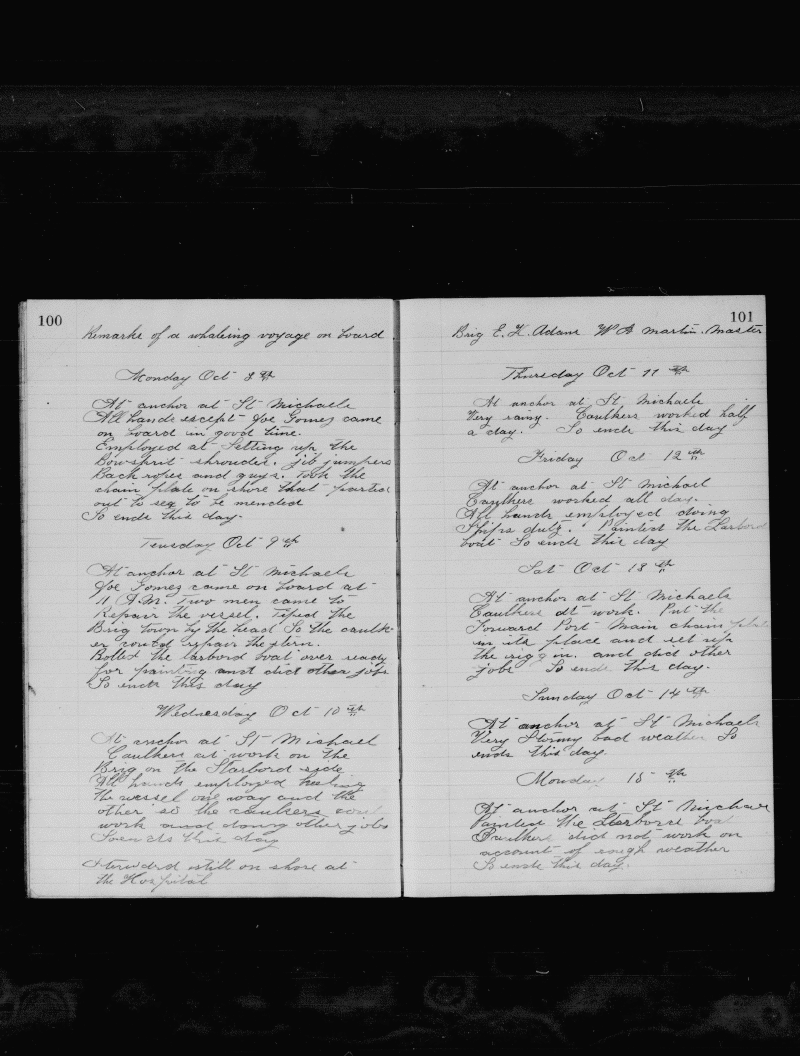 100
Remarks of a whaleing voyage on board
Monday Oct 8th
At anchor at St Michaels
All hands except Joe Gomes came
on board in good time.
Employed at setting up the
Bowsprit shrouder. jib jumpers
Back ropes and guys. Took the
chain plate on shore that parted
out to sea to be mended
So ends this day.
Tuesday Oct 9th
At anchor at St Michaels
Joe Gomes came on board at
11 A.M. Two men came to
Repair the vessel. Tiped the
Brig town by the head So the caulk-
er could repair the stern.
Bolted the larbord boat over ready
for painting and did other jobs
So ends this day
Wednesday Oct 10th
At anchor at St Michael
Caulkers at work on the
Brig on the Starbord side
All hands employed heeling
the vessel one way and the
other so the caulkers could
work and doing other jobs
So ends this day
Steward still on shore at
the Hospital
101
Brig E. H. Adams W A Martin. Master
Thursday Oct 11th
At anchor at St Michaels
Very rainy. Caulkers worked half
a day. So ends this day
Friday Oct 12th
At anchor at St Michael
Caulkers worked all day.
All hands employed doing
Ships duty. Painted the Larbord
boat So ends this day
Sat Oct 13th
At anchor at St Michaels
Caulkers at work. Put the
Forward Port Main chain plate
in its place and set up
the rigg in. and did other
jobs So ends this day.
Sunday Oct 14th
At anchor at St Michaels
Very Stormy bad weather So
ends this day
Monday 15th
At anchor at St Michael
Painted the Starbord boat
Caulkers did not work on
account of rough weather
So ends this day.